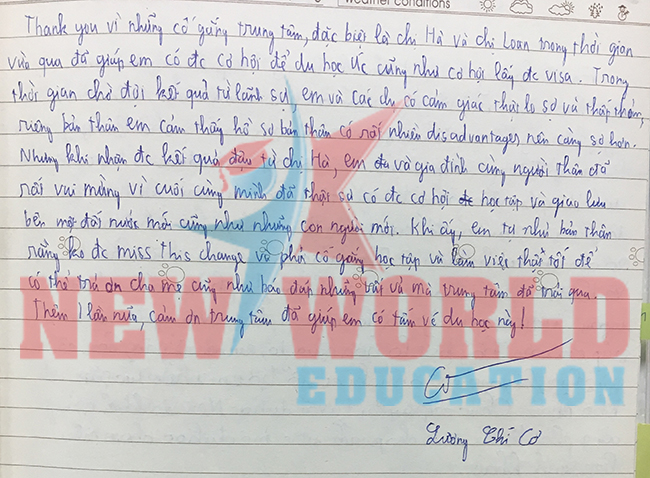 weather conditions
Thank you vì những cố gắng trung tâm, đặc biệt là chị Hà và chị Loan trong thời gian
vừa qua đã giúp em có đc cơ hội để du học Úc cũng như cơ hội lấy đc visa. Trong
thời gian chờ đợi kết quả từ lãnh sự, em và các chị có cảm giác thật lo sợ và thấp thỏm,
riêng bản thân em cảm thấy hồ sơ bản thân có rất nhiều disadvantages nên càng sợ hơn.
Nhưng khi nhận đc kết quả đậu từ chị Hà, em và gia đình cùng người thân đã
rất vui mừng vì cuối cùng mình đã thật sự có đc cơ hội học tập và giao lưu
bên một đất nước mới cũng như những con người mới. Khi ấy, em tự nhủ bản thân
rằng ko đc miss this change và phải cố gắng học tập và làm việc thật tốt để
có thể trả ơn cha mẹ cũng như báo đáp những vất vả mà trung tâm đã trải qua.
Thêm 1 lần nữa, cảm ơn trung tâm đã giúp em có tấm vé du học này!
NEW WORLD
EDUCATION
Lương Chí Cơ